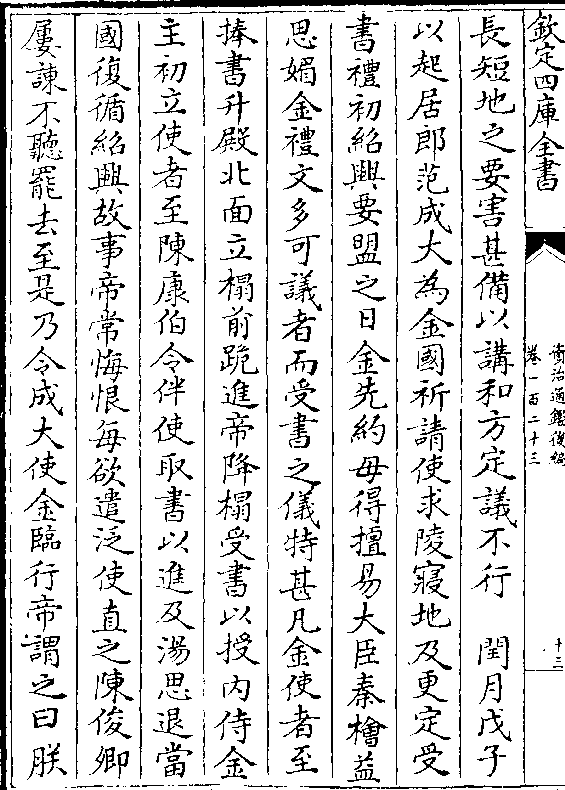 欽定四庫全書
資治通鑑後編
卷一百二十三
十三
長短地之要害甚備以講和方定議不行　閏月戊子
以起居郎范成大為金國祈請使求陵寢地及更定受
書禮初紹興要盟之日金先約毋得擅易大臣秦檜益
思媚金禮文多可議者而受書之儀特甚凡金使者至
捧書升殿北面立榻前跪進帝降榻受書以授内侍金
主初立使者至陳康伯令伴使取書以進及湯思退當
國復循紹興故事帝常悔恨每欲遣泛使直之陳俊卿
屢諫不聽罷去至是乃令成大使金臨行帝謂之曰朕